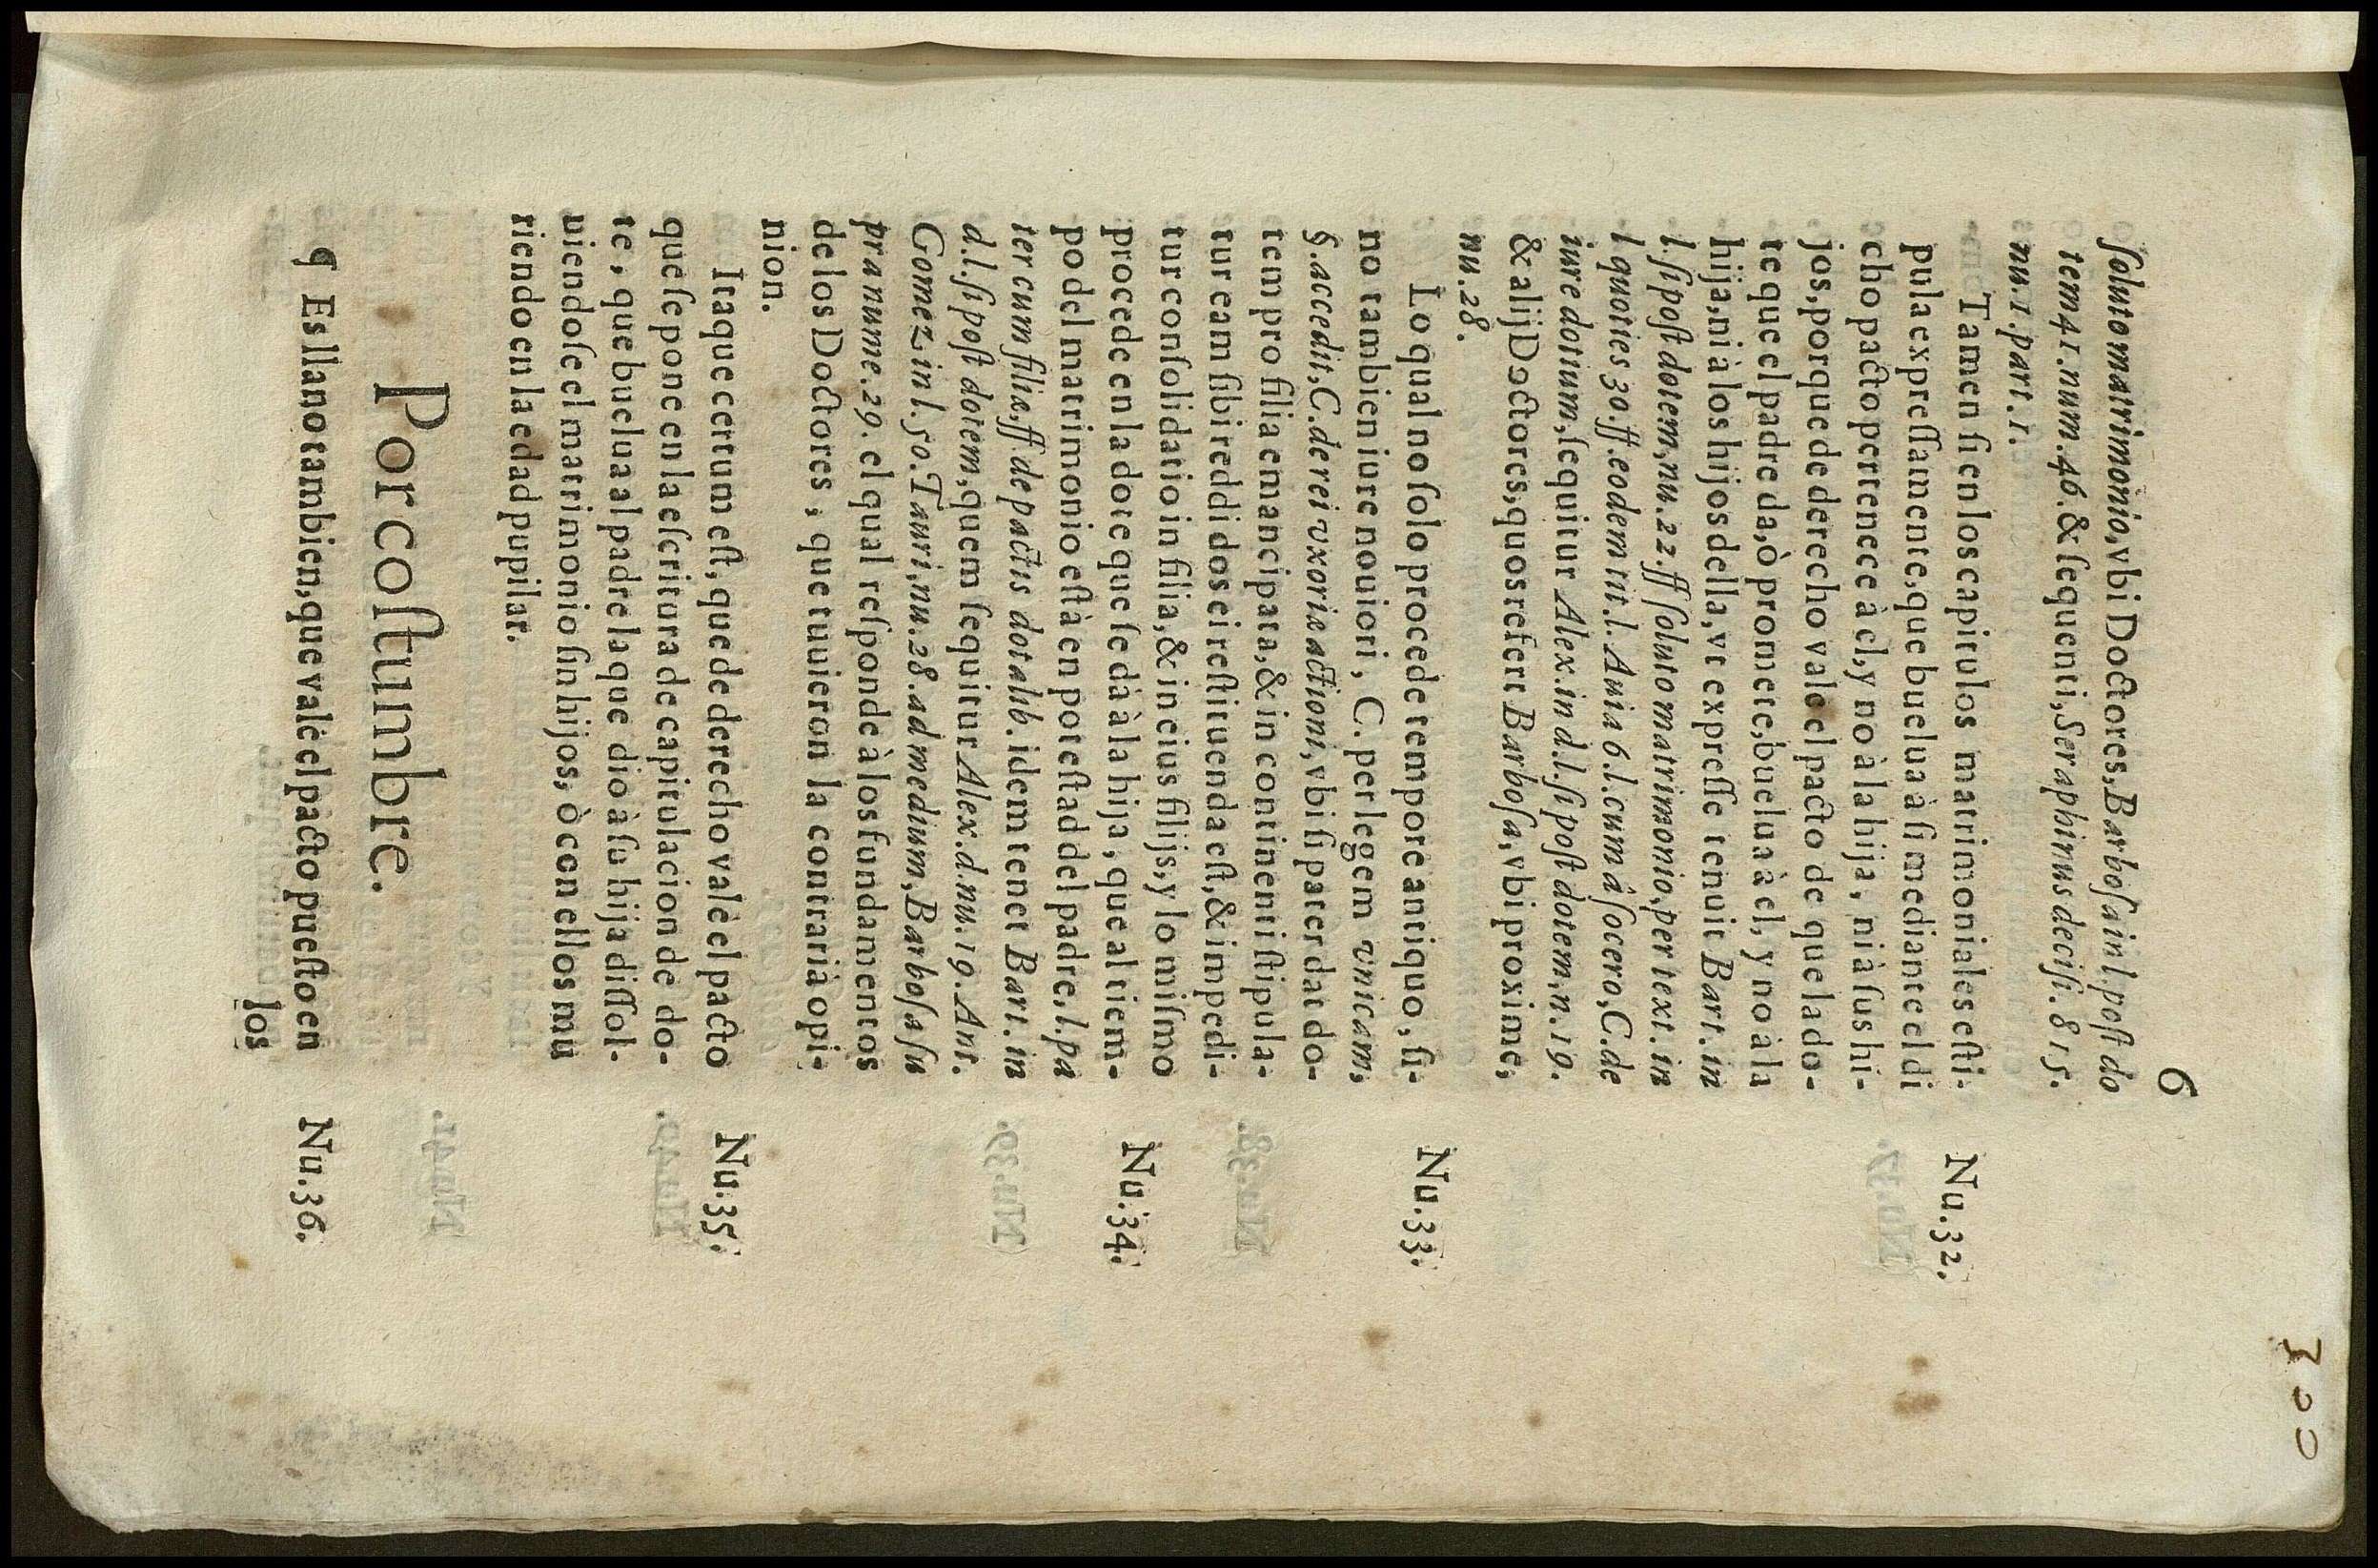 6
300
ſoluto matrimonio, vbi Doctores, Barboſa in l. poſt do
tem 41. num. 46. & ſequenti, Seraphinus deciſi. 815.
nu. 1. part. 1.
Tamen ſi en los capitulos matrimoniales eſti-
Nu. 32.
pula expreſſamente, que buelua à ſi mediante el di
cho pacto pertenece à el, y no à la hija, ni à ſus hi-
jos, porque de derecho vale el pacto de que la do-
te que el padre da, ò promete, buelua à el, y no à la
hija, ni à los hijos della, vt expreſſe tenuit Bart. in
l. ſi poſt dotem, nu. 22. ff ſoluto matrimonio, per text. in
l quoties 30. ff. eodem tit. l. Auia 6. l. cum à ſocero, C. de
iure dotium, ſequitur Alex. in d. l. ſi poſt dotem, n. 19.
& alij Doctores, quos refert Barboſa, vbi proxime,
nu. 28.
Lo qual no ſolo procede tempore antiquo, ſi-
Nu. 33.
no tambien iure nouiori, C. per legem vnicam,
§. accedit, C. de rei vxoriæ actioni, vbi ſi pater dat do-
tem pro filia emancipata, & in continenti ſtipula-
tur eam ſibi reddi dos ei reſtituenda eſt, & impedi-
tur conſolidatio in filia, & in eius filijs, y lo miſmo
procede en la dote que ſe dà à la hija, que al tiem-
Nu. 34.
po del matrimonio eſtà en poteſtad del padre, l. pa
ter cum filiæ, ff de pactis dotalib. idem tenet Bart. in
d. l. ſi poſt dotem, quem ſequitur Alex. d. nu. 19. Ant.
Gomez in l. 50. Tauri, nu. 28. ad medium, Barboſa ſu
pra nume. 29. el qual reſponde à los fundamentos
de los Doctores, que tuuieron la contraria opi-
nion.
Itaque certum eſt, que de derecho vale el pacto
Nu. 35.
que ſe pone en la eſcritura de capitulacion de do-
te, que buelua al padre la que dio à ſu hija diſſol-
uiendoſe el matrimonio ſin hijos, ò con ellos mu
riendo en la edad pupilar.
Por coſtumbre.
¶ Es llano tambien, que vale el pacto pueſto en
Nu. 36.
los